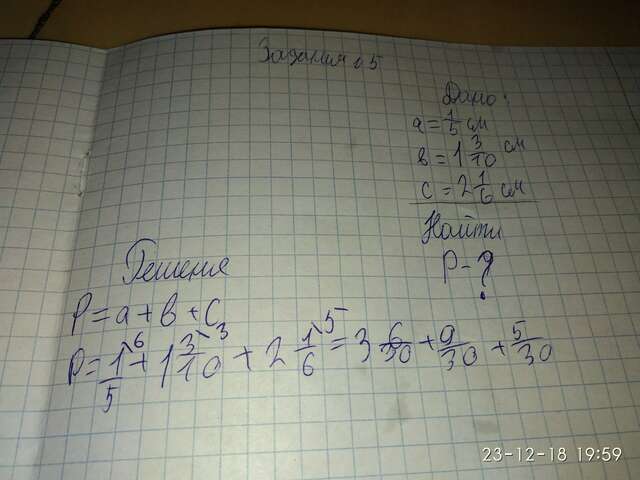 Задания 5
Дано:
a = 1/5 см
в = 1 3/10 см
с = 2 1/6 см
Найти
P - ?
Решение
P = a + в + с
P = 1/5 ⁶ + 1 3/10 ³ + 2 1/6 ⁵ = 3 6/30 + 9/30 + 5/30
23-12-18 19:59